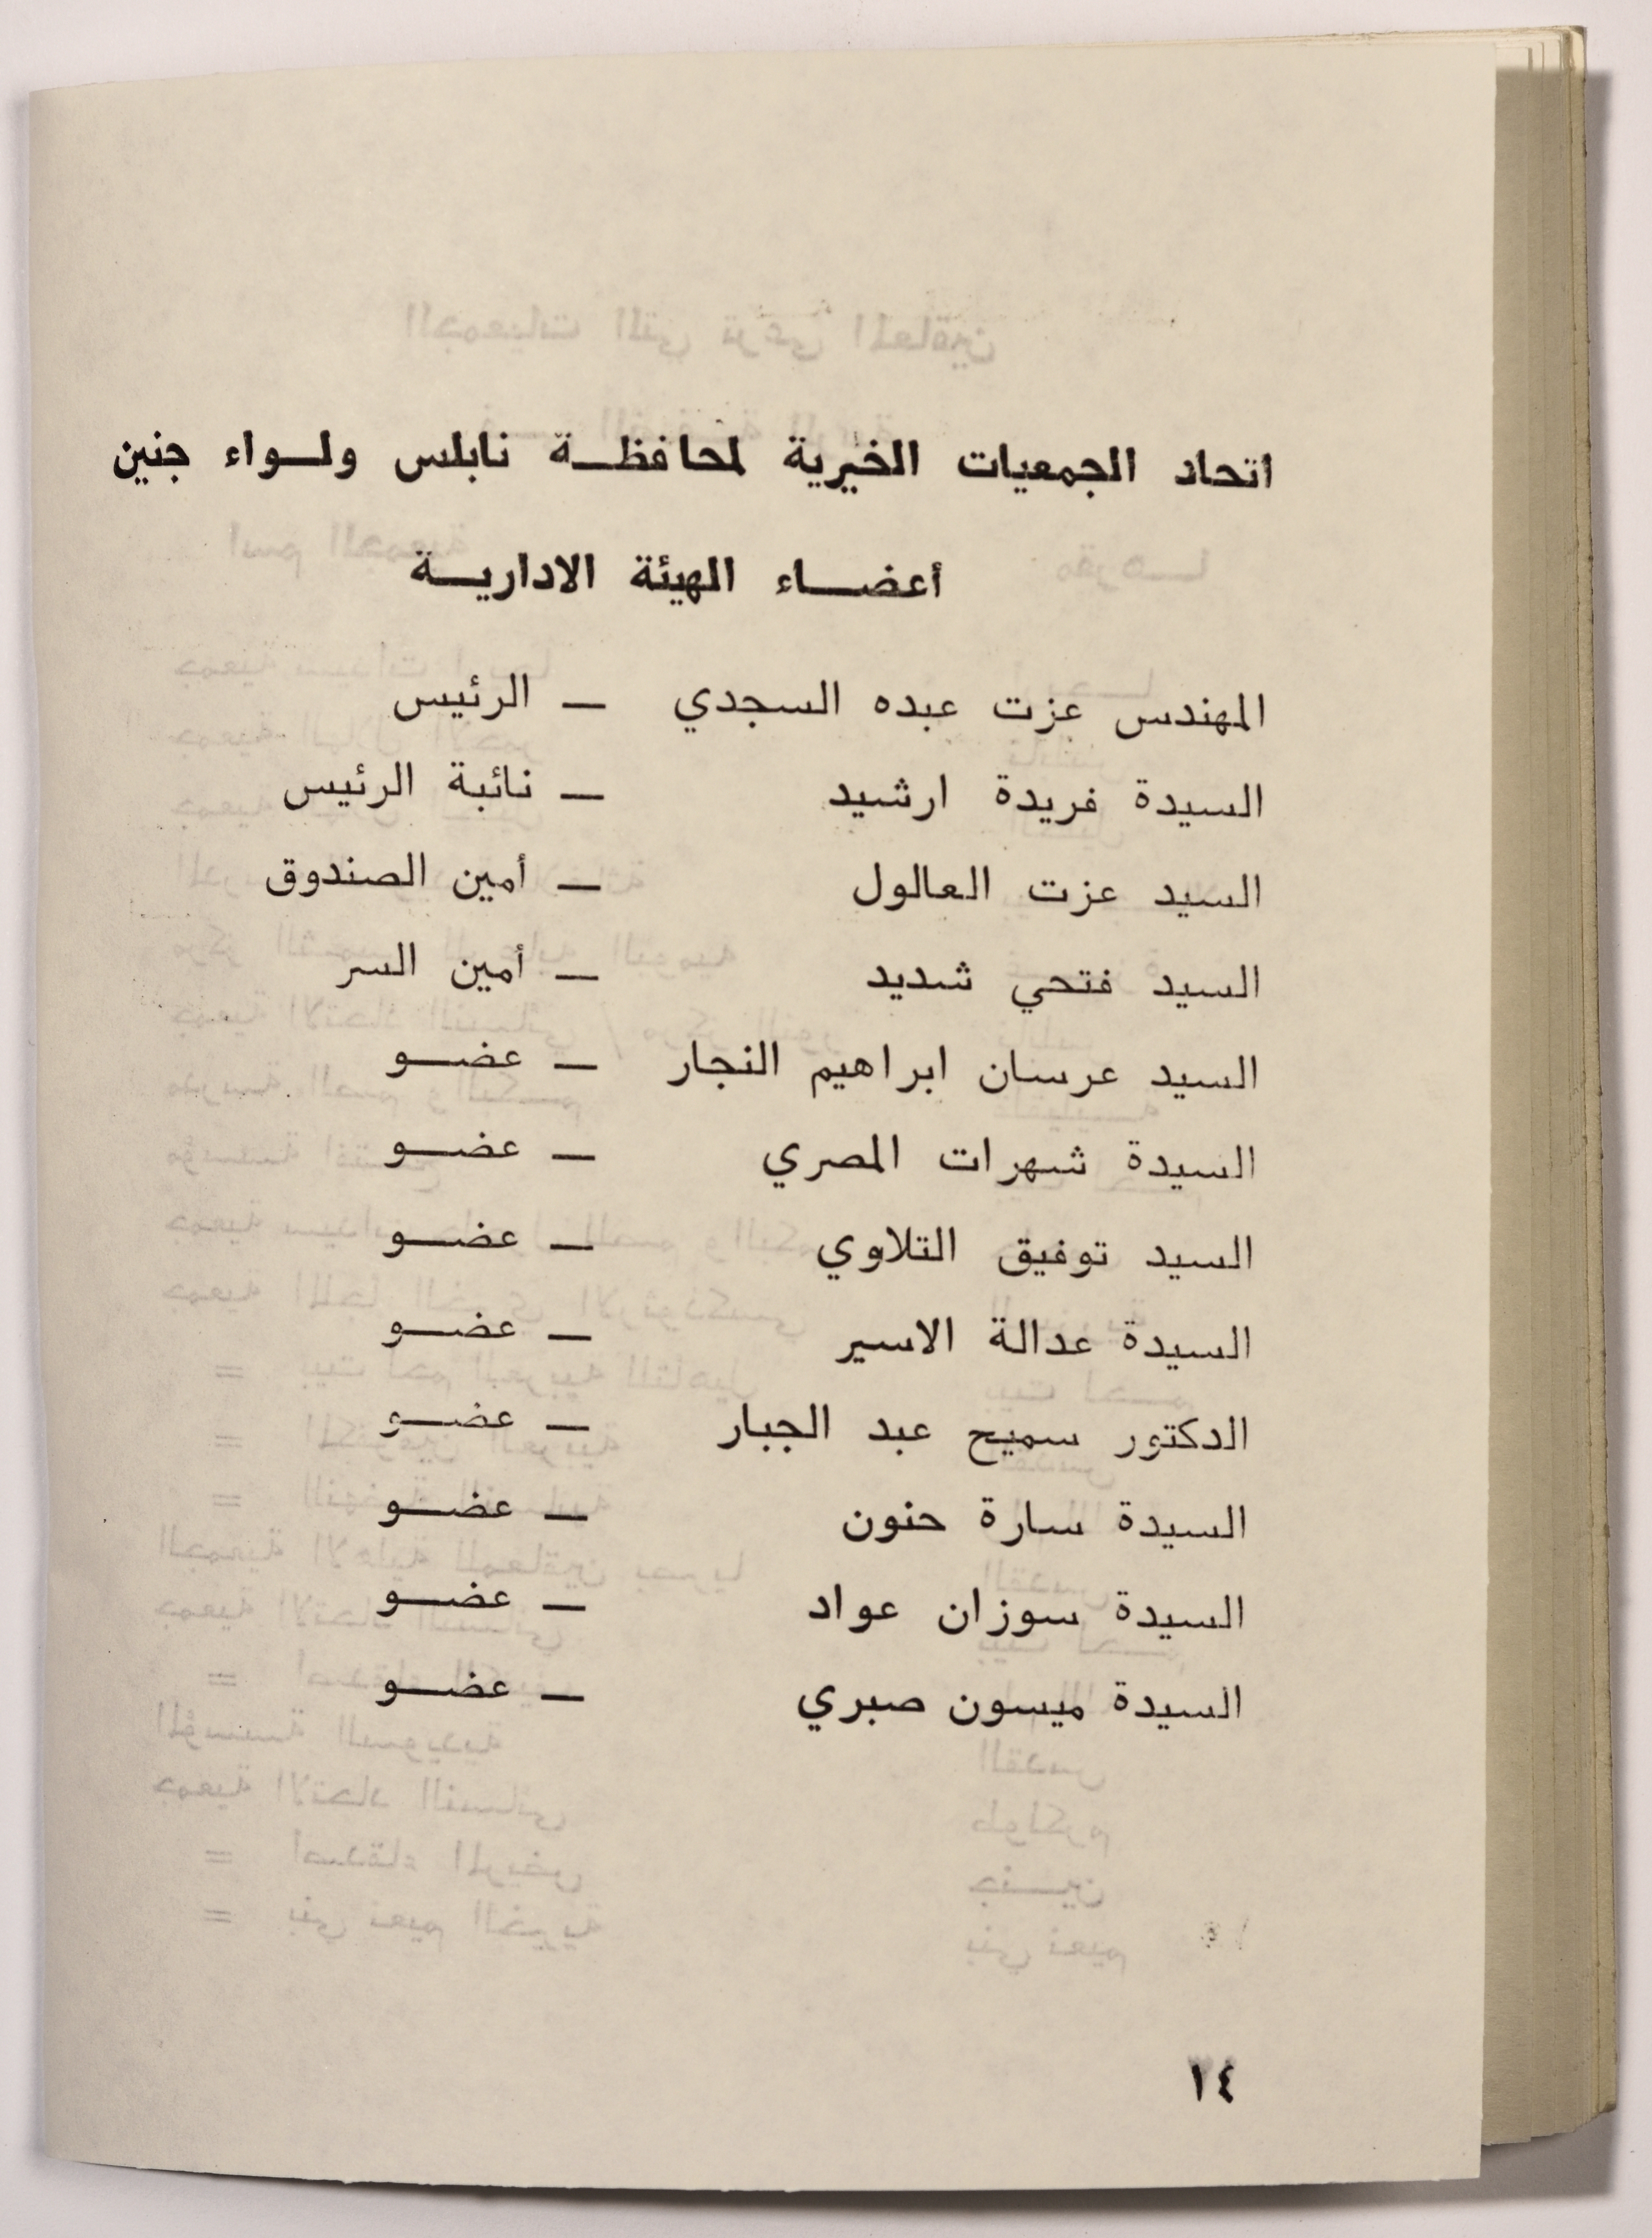 اتحاد الجمعيات الخيرية لمحافظة نابلس ولواء جنين
أعضاء الهيئة الادارية
المهندس عزت عبده السجدي – الرئيس
السيدة فريدة ارشيد – نائبة الرئيس
السيد عزت العالول – أمين الصندوق
السيد فتحي شديد – أمين السر
السيد عرسان ابراهيم النجار – عضو
السيدة شهرات المصري – عضو
السيد توفيق التلاوي – عضو
السيدة عدالة الاسير – عضو
الدكتور سميح عبد الجبار – عضو
السيدة سارة حنون – عضو
السيدة سوزان عواد – عضو
السيدة ميسون صبري – عضو
١٤